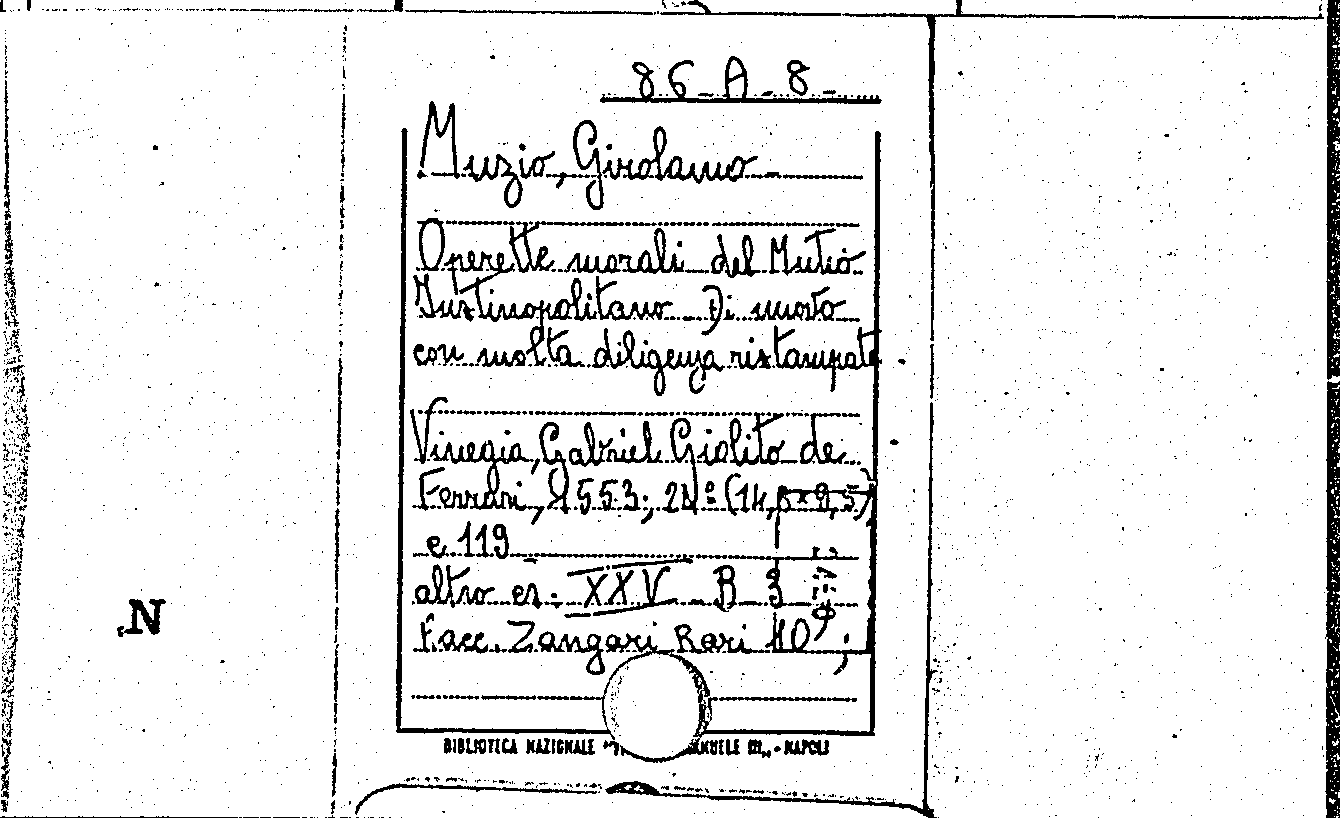 86-A-8-
Muzio, Girolamo-
Operette morali del Mutio
Justinopolitano. Di nuovo
con molta diligenza ristampate
Vinegia, Gabriel Giolito de
Ferrari, 1553; 24° (14,5×9,5)
c 119
altro es. XXV B 3
Racc. Zangari Rari 110;
N
BIBLIOTECA NAZIONALE "V ANUELE III„ - NAPOLI